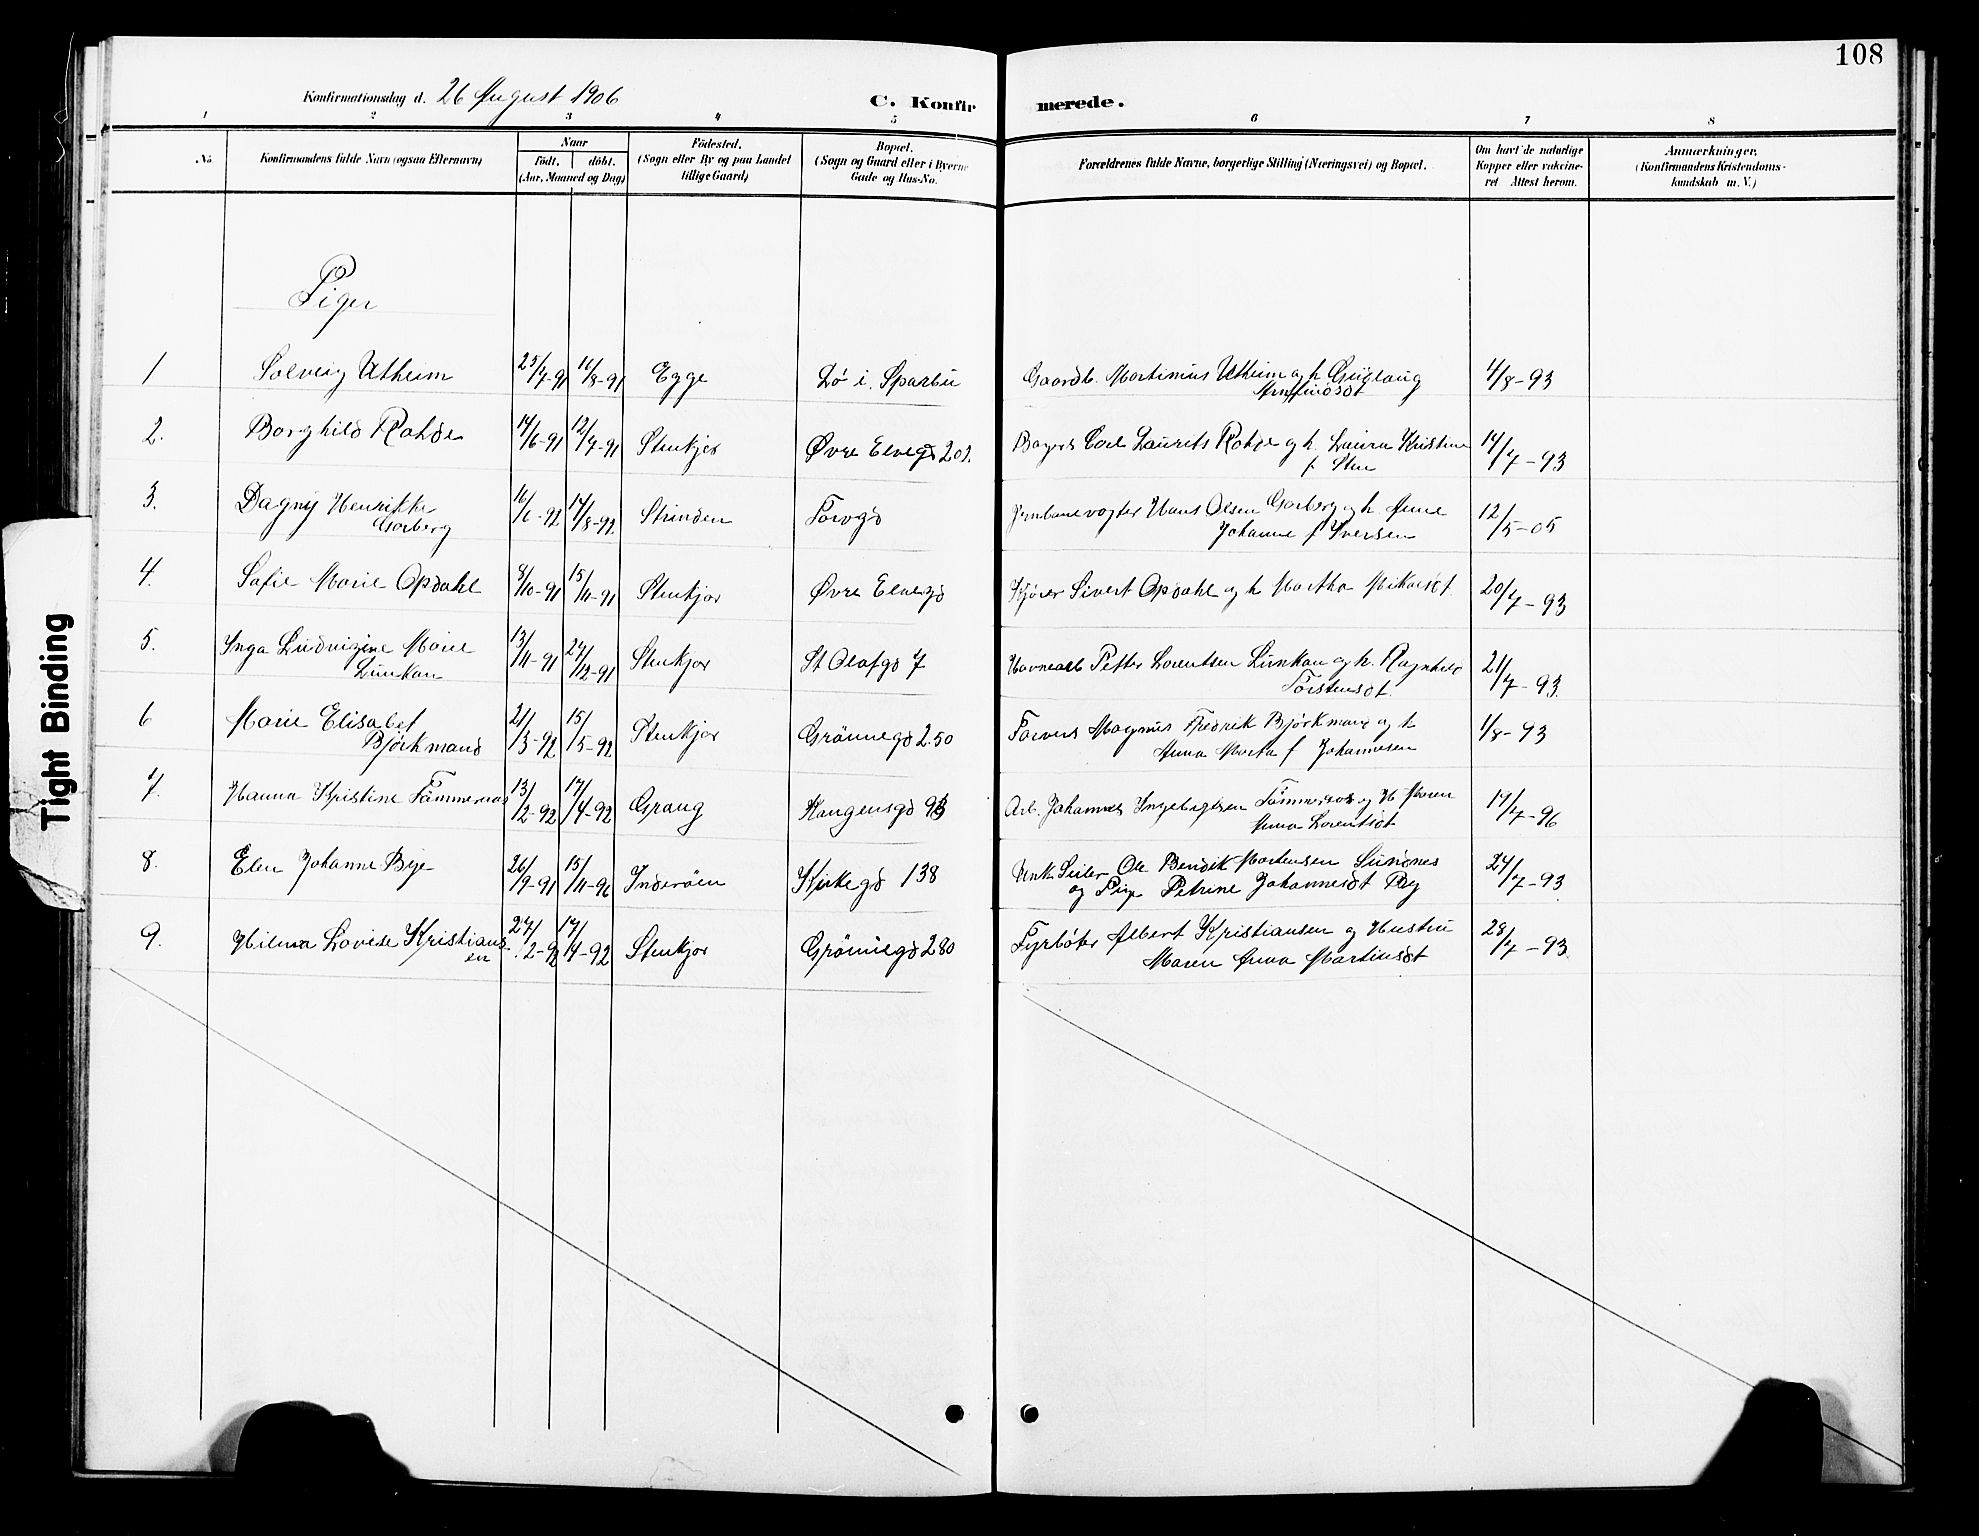 108
Konfirmationsdag d. 26 August 1906
C. Konfir merede.
1 2 3 4 5 6 7 8
No
Konfirmandens fulde Navn (ogsaa Efternavn)
Naar
Födt. döbt.
(Aar, Maaned og Dag)
Födested.
(Sogn eller By og paa Landet
tillige Gaard)
Bopæl.
(Sogn og Gaard eller i Byerne
Gade og Hus-No.
Forældrenes fulde Navne, borgerlige Stilling (Næringsvei) og Bopæl.
Om havt de naturlige
Kopper eller vakcine-
ret Attest herom.
Anmærkninger,
(Konfirmandens Kristendoms-
kundskab m. V.)
Piger
1 Solveig Utheim 25/7-91 16/8-91 Egge Lø i Sparbu Gaardb. Martinius Utheim og h. Gusлaug 4/8-93
Arnfinnsdt
2. Borghild Rohde 14/6-91 12/7-91 Stenkjer Øvre Elvegd 202. Bagers Carl Laurits Rohde og h. Laura Kristine 14/7-93
f. Sten
3. Dagny Henrikke 16/6-92 14/8-92 Strinden Torvgd Jernbanevogter Hans Olsen Garberg og h. Anne 12/5-05
Garberg Johanne f Iversen
4. Sofie Marie Opdahl 8/10-91 15/11-91 Stenkjer Øvre Elvegd Kjører Sivert Opdahl og h Martha Mikalsdt. 20/7-93
5. Inga Ludvigine Marie 13/11-91 27/12-91 Stenkjer St Olafgd 7 Havnearb Petter Lorentsen Lunkan og h. Ragnhild 21/7-93
Lunkan Torstensdt.
6 Marie Elisabet 21/3-92 15/5-92 Stenkjer Grönnegd 250 Farvers Magnus Fredrik Björkmand og h 1/8-93
Björkmand Anna Marta f Johannesen
7. Hanna Kristine Tömmeraas 13/2-92 17/4-92 Graug Kongensgd 93 Arb. Johannes Ingebrigtsen Tömmeraas og H Maren 17/7-96
Anna Lorentsdt
8. Elen Johanne Bye 26/9-91 15/11-91 Inderöen Kirkegd 138 Unk. Seiler Ole Bendik Mortensen Sundnes 24/7-93
og Pige Petrine Johannesdt By
9. Hilma Lovise Kristians- 27/2-92 17/4-92 Stenkjer Grönnegd 280 Fyrböter Albert Kristiansen og Hustru 28/7-93
en Maren Anna Martinsdt
Tight Binding